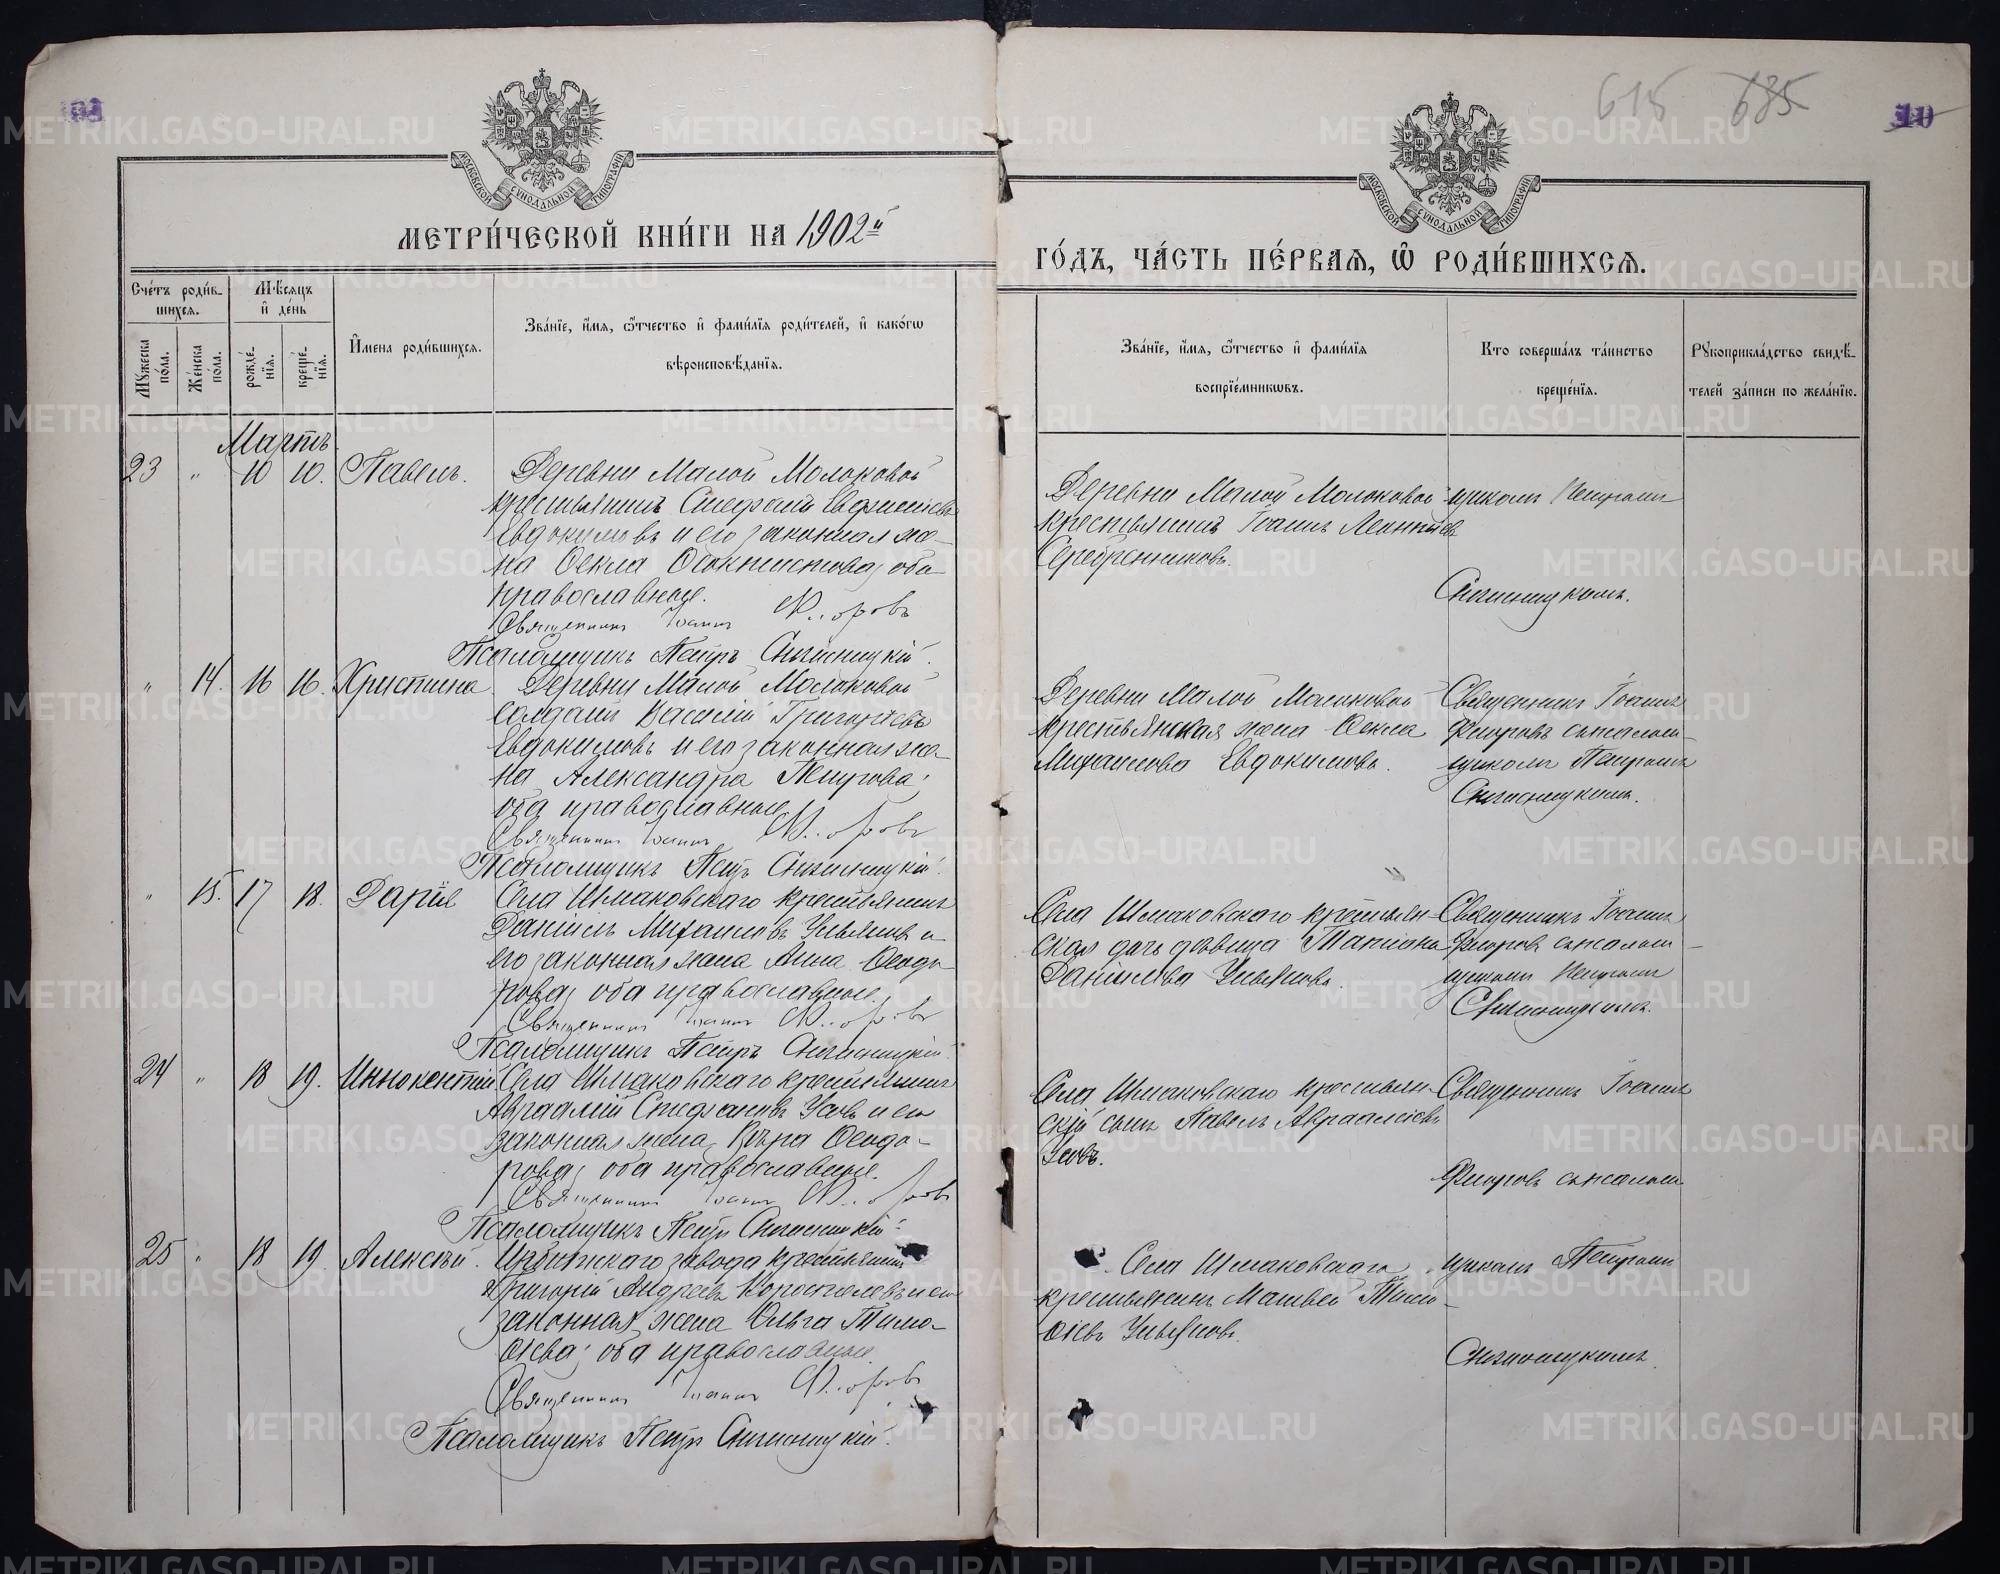 615 685
10
МОСКОВСКОЙ СѴНОДАЛЬНОЙ ТИПОГРАФІИ
МОСКОВСКОЙ СѴНОДАЛЬНОЙ ТИПОГРАФІИ
МЕТРИ́ЧЕСКОЙ КНИ́ГИ НА 1902й
ГО́ДЪ, ЧА́СТЬ ПЕ́РВАѦ, Ѡ҆ РОДИ́ВШИХСѦ.
Сче́тъ роди́в-
шихсѧ.
Мѣ́сѧцъ
и҆ де́нь
Мꙋ́жеска по́ла.
Же́нска по́ла.
рожде́-
нїѧ.
креще́-
нїѧ.
И҆мена роди́вшихсѧ.
Зва́нїе, и҆́мѧ, ѻ҆́тчество и҆ фами́лїѧ роди́телей, и҆ како́гѡ
вѣроисповѣ́данїѧ.
Зва́нїе, и҆́мѧ, ѻ҆́тчество и҆ фами́лїѧ
воспрїе́мникѡвъ.
Кто соверша́лъ та́инство
креще́нїѧ.
Рꙋкоприкла́дство свидѣ́-
телей за́писи по жела́нїю.
Мартъ
23 " 10 10. Павелъ.
Деревни Малой Молоковой
крестьянинъ Стефанъ Евгениевъ
Евдокимовъ и его законная же-
на Ѳекла Ѳеоктистова, оба
православные.
Священникъ Іоаннъ Флоровъ
Псаломщикъ Петръ Снигницкій.
Деревни Малой Молоковой
крестьянинъ Іоаннъ Леонтьев
Серебренниковъ.
щикомъ Петромъ
" 14. 16 16. Христина
Деревни Малой Молоковой
солдатъ Василій Григорьевъ
Евдокимовъ и его законная же-
на Александра Петрова,
оба православные
Священникъ Іоаннъ Флоровъ
Псаломщикъ Петръ
Деревни Малой Молоковой
крестьянская жена Ѳекла
Михаилова Евдокимова.
Священникъ Іоаннъ
Флоровъ съ псалом-
щикомъ Петромъ
" 15. 17 18. Дарія
Села Шмаковскаго крестьянинъ
Даніилъ Михаиловъ Ульяновъ и
его законная жена Анна Ѳеодо-
рова, оба православные.
Священникъ Іоаннъ Флоровъ
Псаломщикъ Петръ
Села Шмаковскаго крестьян-
ская дочь девица Татіана
Даніилова Ульянова.
Священникъ Іоаннъ
Флоровъ съ псалом-
щикомъ Петромъ
24 " 18 19. Иннокентій
Села Шмаковскаго крестьянинъ
Авраамій Стефановъ Усовъ и его
законная жена Вѣра Ѳеодо-
рова, оба православные.
Священникъ Іоаннъ Флоровъ
Псаломщикъ Петръ
Села Шмаковскаго крестьян-
скій сынъ Павелъ Авраамиевъ
Усовъ.
Священникъ Іоаннъ
Флоровъ съ псалом
25 " 18 19. Алексѣй.
Ирбитскаго завода крестьянинъ
Григорій Андреевъ Коростелевъ и его
законная жена Ольга Тимо-
ѳеева, оба православные.
Священникъ Іоаннъ Флоровъ
Псаломщикъ Петръ
Села Шмаковскаго
крестьянинъ Матвей Тимо-
ѳеевъ Ульяновъ.
щикомъ Петромъ
METRIKI.GASO-URAL.RU